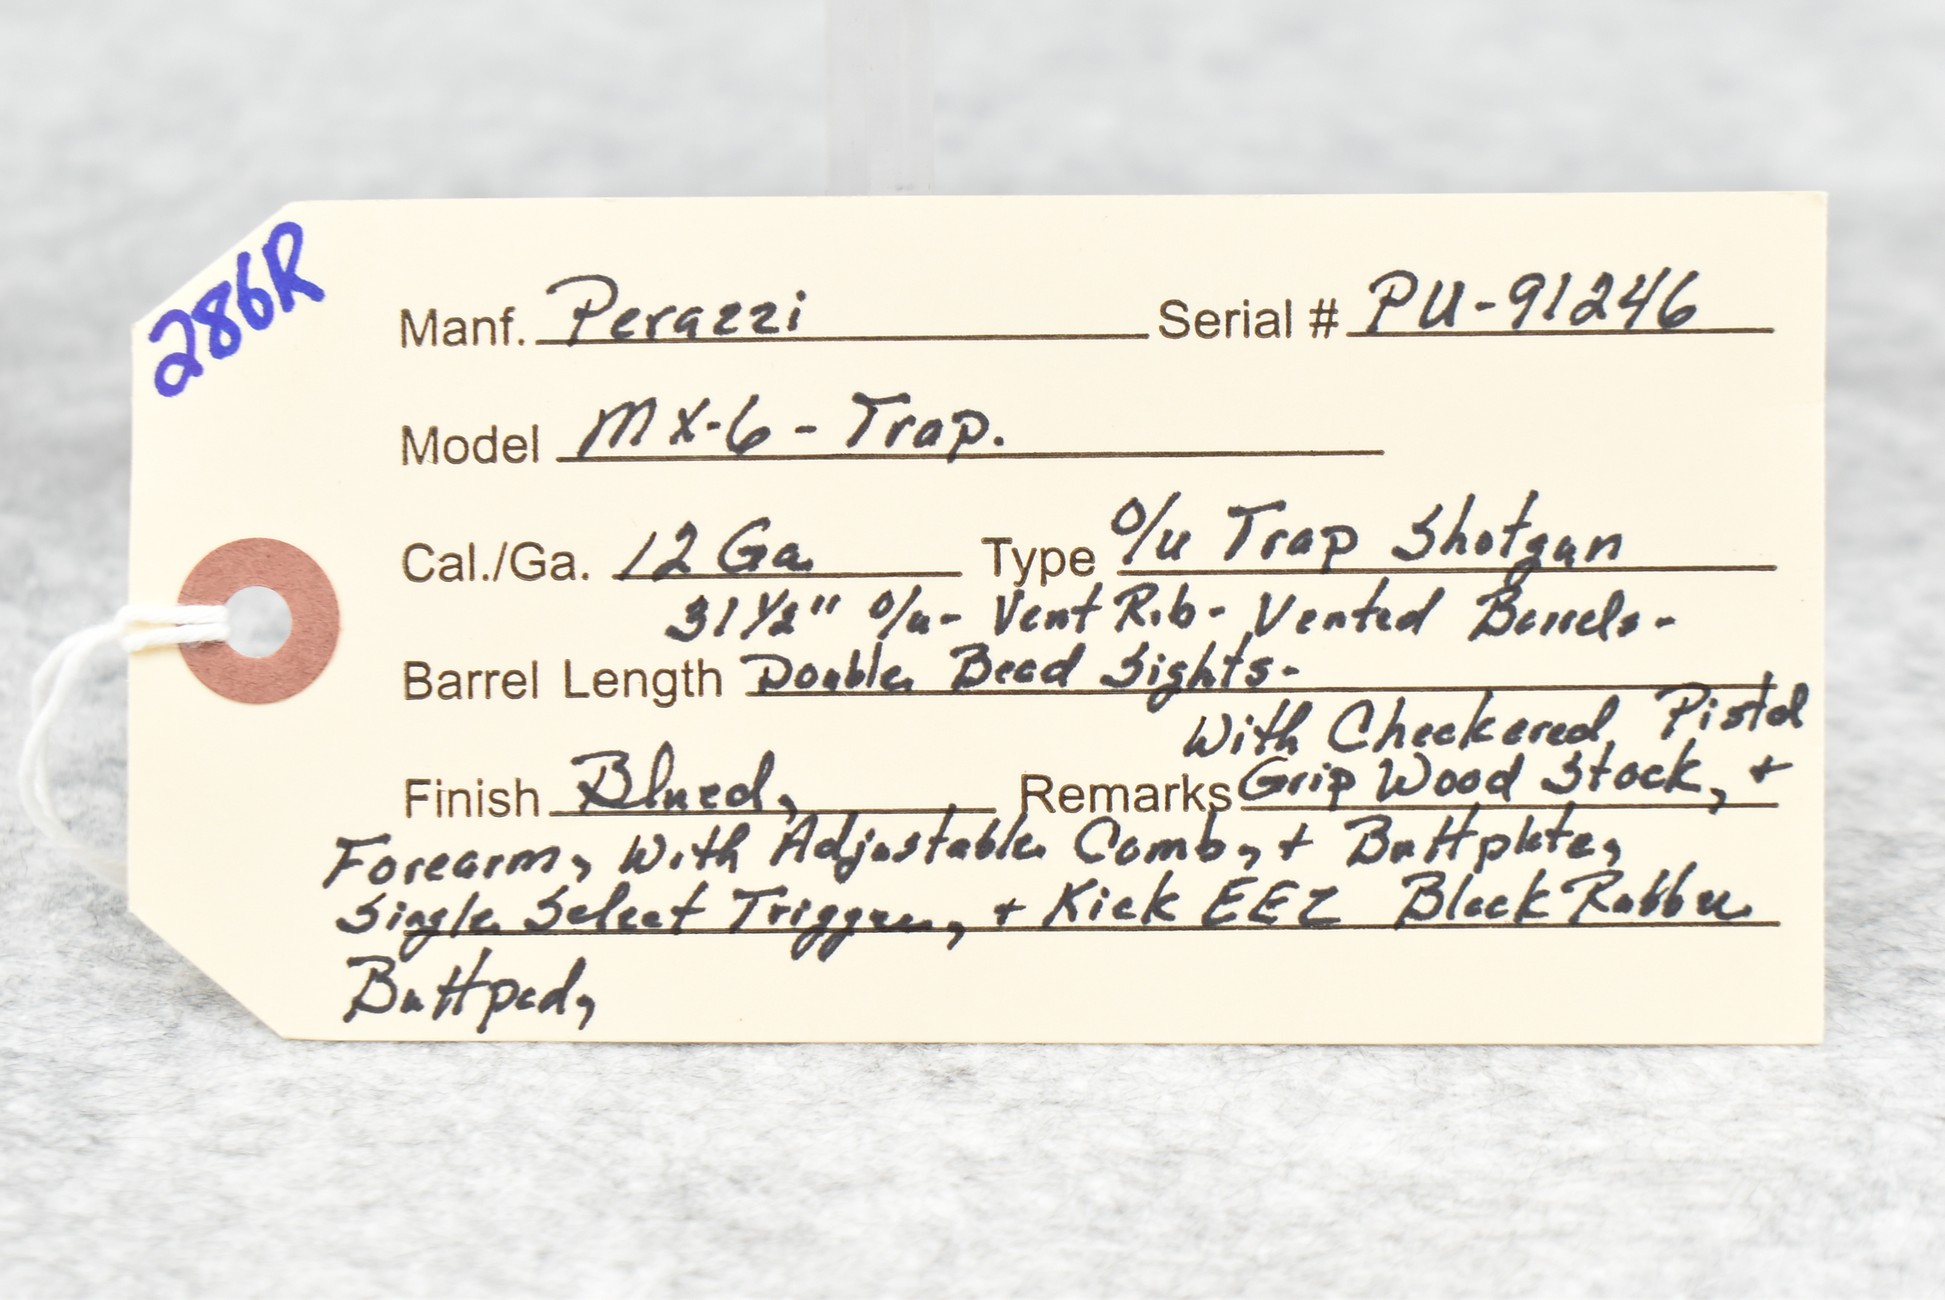 286R
Manf. Perazzi Serial # PU-91246
Model MX-6 - Trap.
Cal./Ga. 12 Ga. Type O/U Trap Shotgun
31 1/2" O/U- Vent Rib- Vented Barrels-
Barrel Length Double Bead Sights-
With Checkered Pistol
Finish Blued, Remarks Grip Wood Stock, +
Forearm, With Adjustable Comb, + Buttplate,
Single Select Trigger, + Kick EEZ Black Rubber
Buttpad,